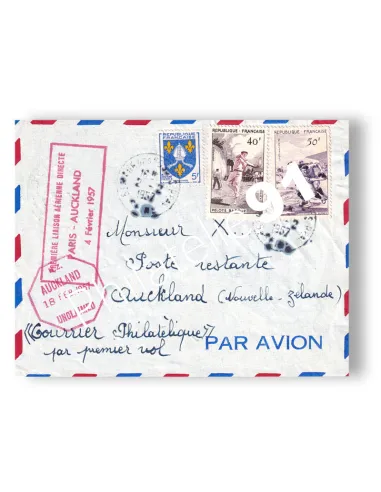 RÉPUBLIQUE FRANÇAISE
5F
RÉPUBLIQUE FRANÇAISE
40F
PELOTE BASQUE
RÉPUBLIQUE FRANÇAISE
50F
91
PREMIÈRE LIAISON AÉRIENNE DIRECTE
PARIS - AUCKLAND
4 Février 1957
AUCKLAND
18 FEB 1957
UNCLAIMED
Monsieur X...
Poste restante
Auckland (Nouvelle-Zélande)
"Courrier Philatélique"
par premier vol
PAR AVION